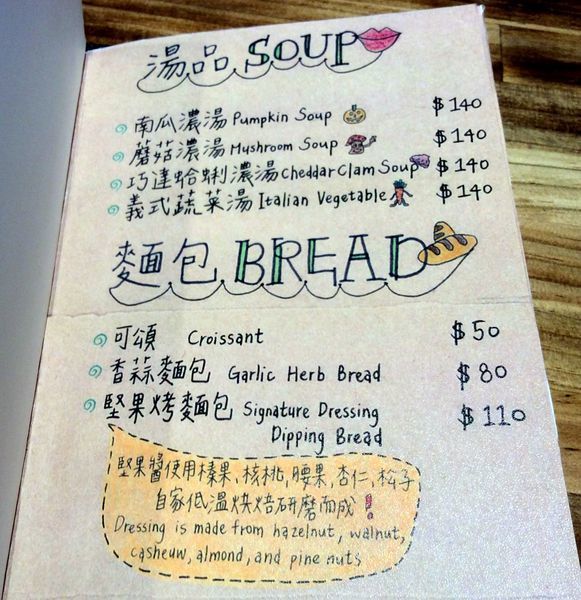 湯品 SOUP
南瓜濃湯 Pumpkin Soup $140
蘑菇濃湯 Mushroom Soup $140
巧達蛤蜊濃湯 Cheddar Clam Soup $140
義式蔬菜湯 Italian Vegetable $140
麵包 BREAD
可頌 Croissant $50
香蒜麵包 Garlic Herb Bread $80
堅果烤麵包 Signature Dressing $110
Dipping Bread
堅果醬使用榛果、核桃、腰果、杏仁、松子
自家低溫烘焙研磨而成!
Dressing is made from hazelnut, walnut,
casheuw, almond, and pine nuts